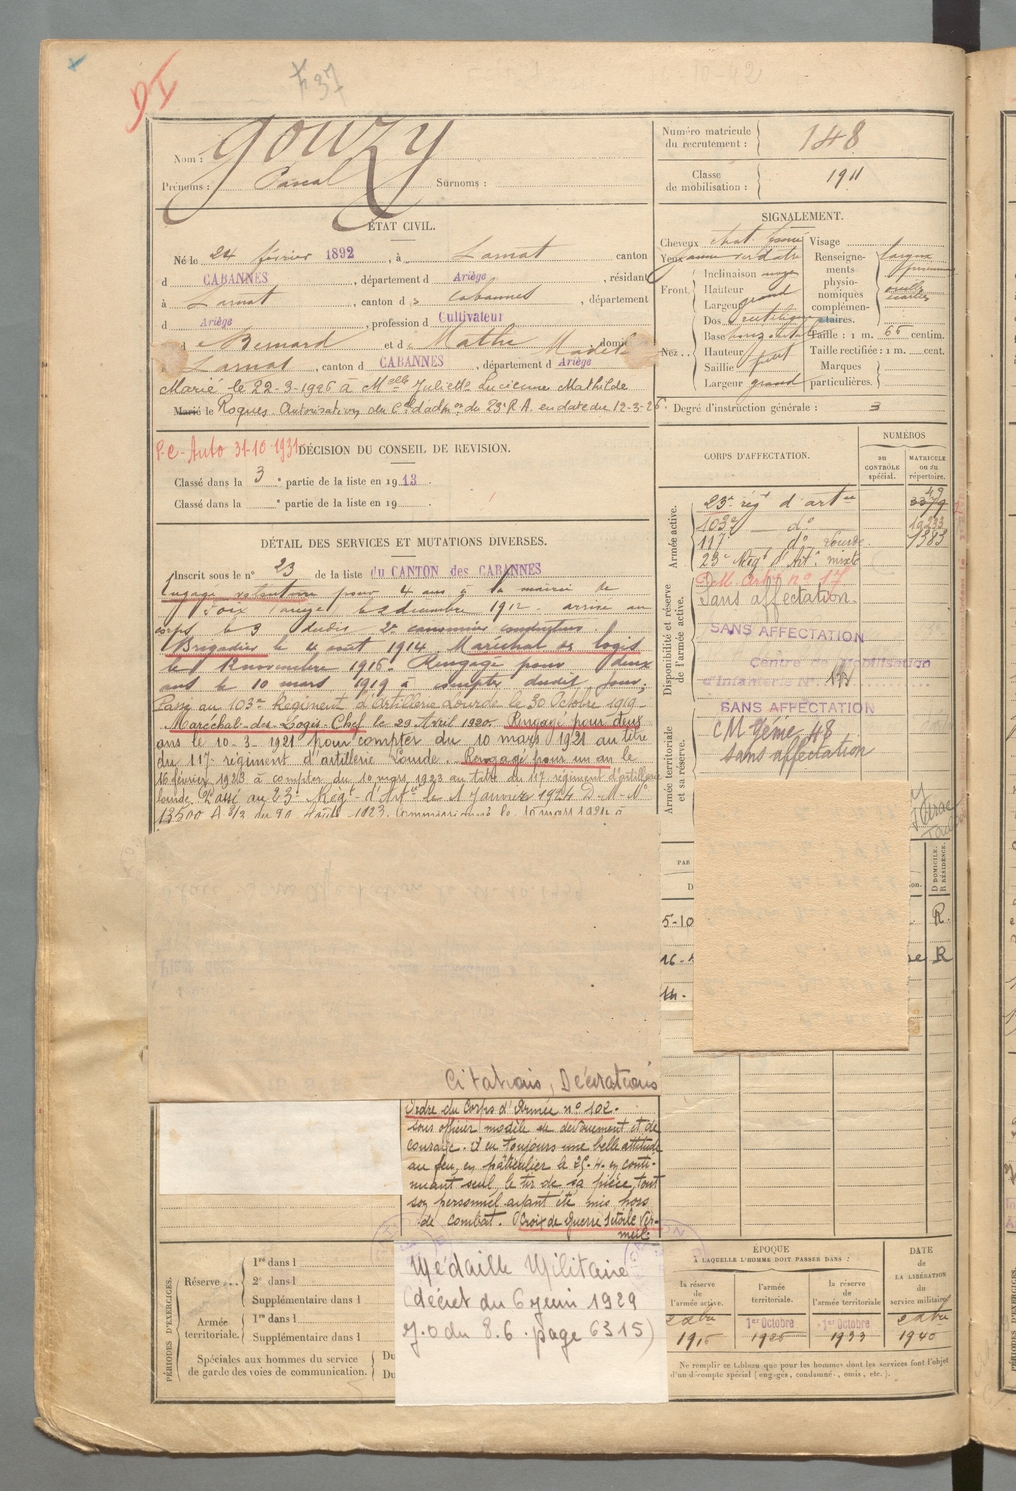 Nom : Gouzy
Prénoms : Pascal Surnoms :
Numéro matricule du recrutement : 148
Classe de mobilisation : 1911
ÉTAT CIVIL.
Né le 24 février 1892, à Larnat canton
d CABANNES, département d Ariège, résidant
à Larnat, canton de Cabannes, département
d Ariège, profession d Cultivateur
de Bernard et de Mathe domic
Larnat, canton d CABANNES, département d Ariège
Marié le 22-3-1926 à Melle Juliette Lucienne Mathilde
Marié le Roques. Autorisation du C. d'adm. du 23e R.A. en date du 12-3-26.
SIGNALEMENT.
Cheveux chat.
Yeux
Front. Inclinaison moy.
Hauteur
Largeur grand
Nez. Dos rectiligne
Base horizontale
Hauteur
Saillie
Largeur grand
Visage
Renseignements physionomiques complémentaires.
oreilles écartées
Taille : 1 m. 66 centim.
Taille rectifiée : 1 m. cent.
Marques particulières.
Degré d'instruction générale : 3
P.C-Auto 31-10-1931
DÉCISION DU CONSEIL DE REVISION.
Classé dans la 3e partie de la liste en 1913.
Classé dans la e partie de la liste en 19
DÉTAIL DES SERVICES ET MUTATIONS DIVERSES.
Inscrit sous le n° 23 de la liste du CANTON des CABANNES
Engagé volontaire pour 4 ans à la mairie de
Foix, le 2 décembre 1912. arrivé au
corps le 3 dudit 2e canonnier conducteur
Brigadier le 4 août 1914. Maréchal des logis
le 12 novembre 1916. Rengagé pour deux
ans le 10 mars 1919 à compter dudit jour.
Passé au 103e Régiment d'Artillerie Lourde le 30 Octobre 1919.
Maréchal-des-Logis-Chef le 29 Avril 1920. Rengagé pour deux
ans le 10-3-1921 pour compter du 10 mars 1921 au titre
du 117e régiment d'artillerie Lourde. Rengagé pour un an le
16 février 1923 à compter du 10 mars 1923 au titre du 117e régiment d'artillerie
lourde. Passé au 23e Régt d'Artie le 1 Janvier 1924 D.M. No
13500 du 20 Août 1923. Commissionné le 10 mars 1924 à
CORPS D'AFFECTATION.
NUMÉROS
AU CONTRÔLE spécial.
MATRICULE ou au répertoire.
Armée active.
23e rég t d'art ie 49 3379
103e d° 19233
117e d° lourde 1383
23e Régt d'Art. mixte
Disponibilité et réserve de l'armée active.
D.M. Artie n° 17
Sans affectation.
SANS AFFECTATION
Centre de Mobilisation
d'Infanterie N° 173
Armée territoriale et sa réserve.
SANS AFFECTATION
CM Génie 48
sans affectation
D DOMICILE.
R RÉSIDENCE.
PAR
D
5-10 R.
16- R
14.
Citations, Décorations
Ordre du Corps d'Armée n° 102.
sous officier modèle de dévouement et de
courage. a eu toujours une belle attitude
au feu, en particulier le 25.4. en conti-
nuant seul le tir de sa pièce, tout
son personnel ayant été mis hors
de combat. Croix de Guerre Etoile Ver-
meil.
Médaille Militaire
(décret du 6 juin 1929
J.O du 8.6. page 6315)
PÉRIODES D'EXERCICES.
Réserve...
1re dans l
2e dans l
Supplémentaire dans l
Armée territoriale.
1re dans l
Supplémentaire dans l
Spéciales aux hommes du service
de garde des voies de communication.
Du
Du
ÉPOQUE
À LAQUELLE L'HOMME DOIT PASSER DANS :
la réserve de l'armée active.
l'armée territoriale.
la réserve de l'armée territoriale
DATE de LA LIBÉRATION du service militaire
1915
1er Octobre 1925
1er Octobre 1933
1940
Ne remplir ce tableau que pour les hommes dont les services font l'objet
d'un décompte spécial (engagés, condamné-, omis, etc.).